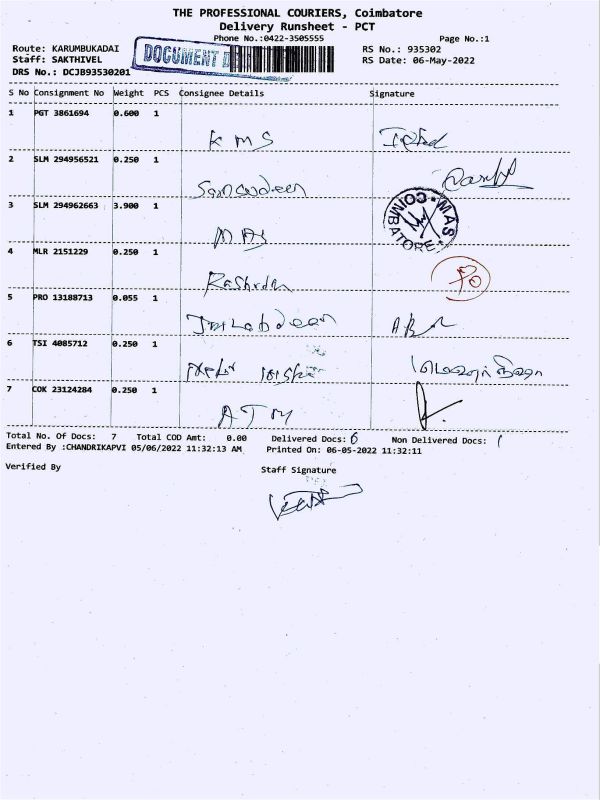 THE PROFESSIONAL COURIERS, Coimbatore
Delivery Runsheet - PCT
Phone No.:0422-3505555 Page No.:1
Route: KARUMBUKADAI RS No.: 935302
Staff: SAKTHIVEL DOCUMENT RS Date: 06-May-2022
DRS No.: DCJB93530201
S No Consignment No Weight PCS Consignee Details Signature
1 PGT 3861694 0.600 1
KMS
2 SLM 294956521 0.250 1
3 SLM 294962663 3.900 1
MAS
MAS COIMBATORE
4 MLR 2151229 0.250 1
5 PRO 13188713 0.055 1
6 TSI 4085712 0.250 1
7 COK 23124284 0.250 1
ATM
Total No. Of Docs: 7 Total COD Amt: 0.00 Delivered Docs: 6 Non Delivered Docs: 1
Entered By :CHANDRIKAPVI 05/06/2022 11:32:13 AM Printed On: 06-05-2022 11:32:11
Verified By Staff Signature